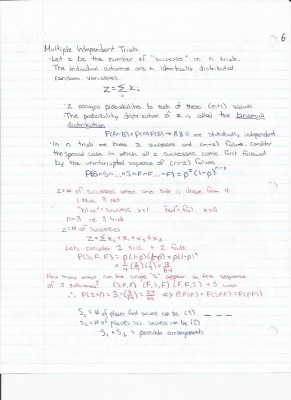 6
Multiple Independent Trials
· Let z be the number of "successes" in n trials.
The individual outcomes are n identically distributed
random variables.
Z = Σ xᵢ
· Z assigns probabilities to each of these (n+1) values
· The probability distribution of z is called the binomial
distribution
P(A∩B) = P(A)P(B) → A,B are statistically independent
· In n trials we have z successes and (n-z) failures. Consider
the special case in which all z successes come first followed
by the uninterrupted sequence of (n-z) failures
Z = # of successes when one ball is drawn from 4
1 blue, 3 red
"blue" = success x=1 "red" = fail, x=0
n=3 i.e. 3 trials
Z = # of successes
Z = Σxᵢ = x₁ + x₂ + x₃
Lets consider 1 succ. + 2 fails
P(S,F,F) = p(1-p)(1-p) = p(1-p)²
How many ways can the single "S" appear in the sequence
of 3 outcomes? (S,F,F) (F,S,F) (F,F,S) = 3 ways
S₁ = # of places first succes can be (3)
S₂ = # of places sec. success can be (2)
S₁ * S₂ = possible arrangements